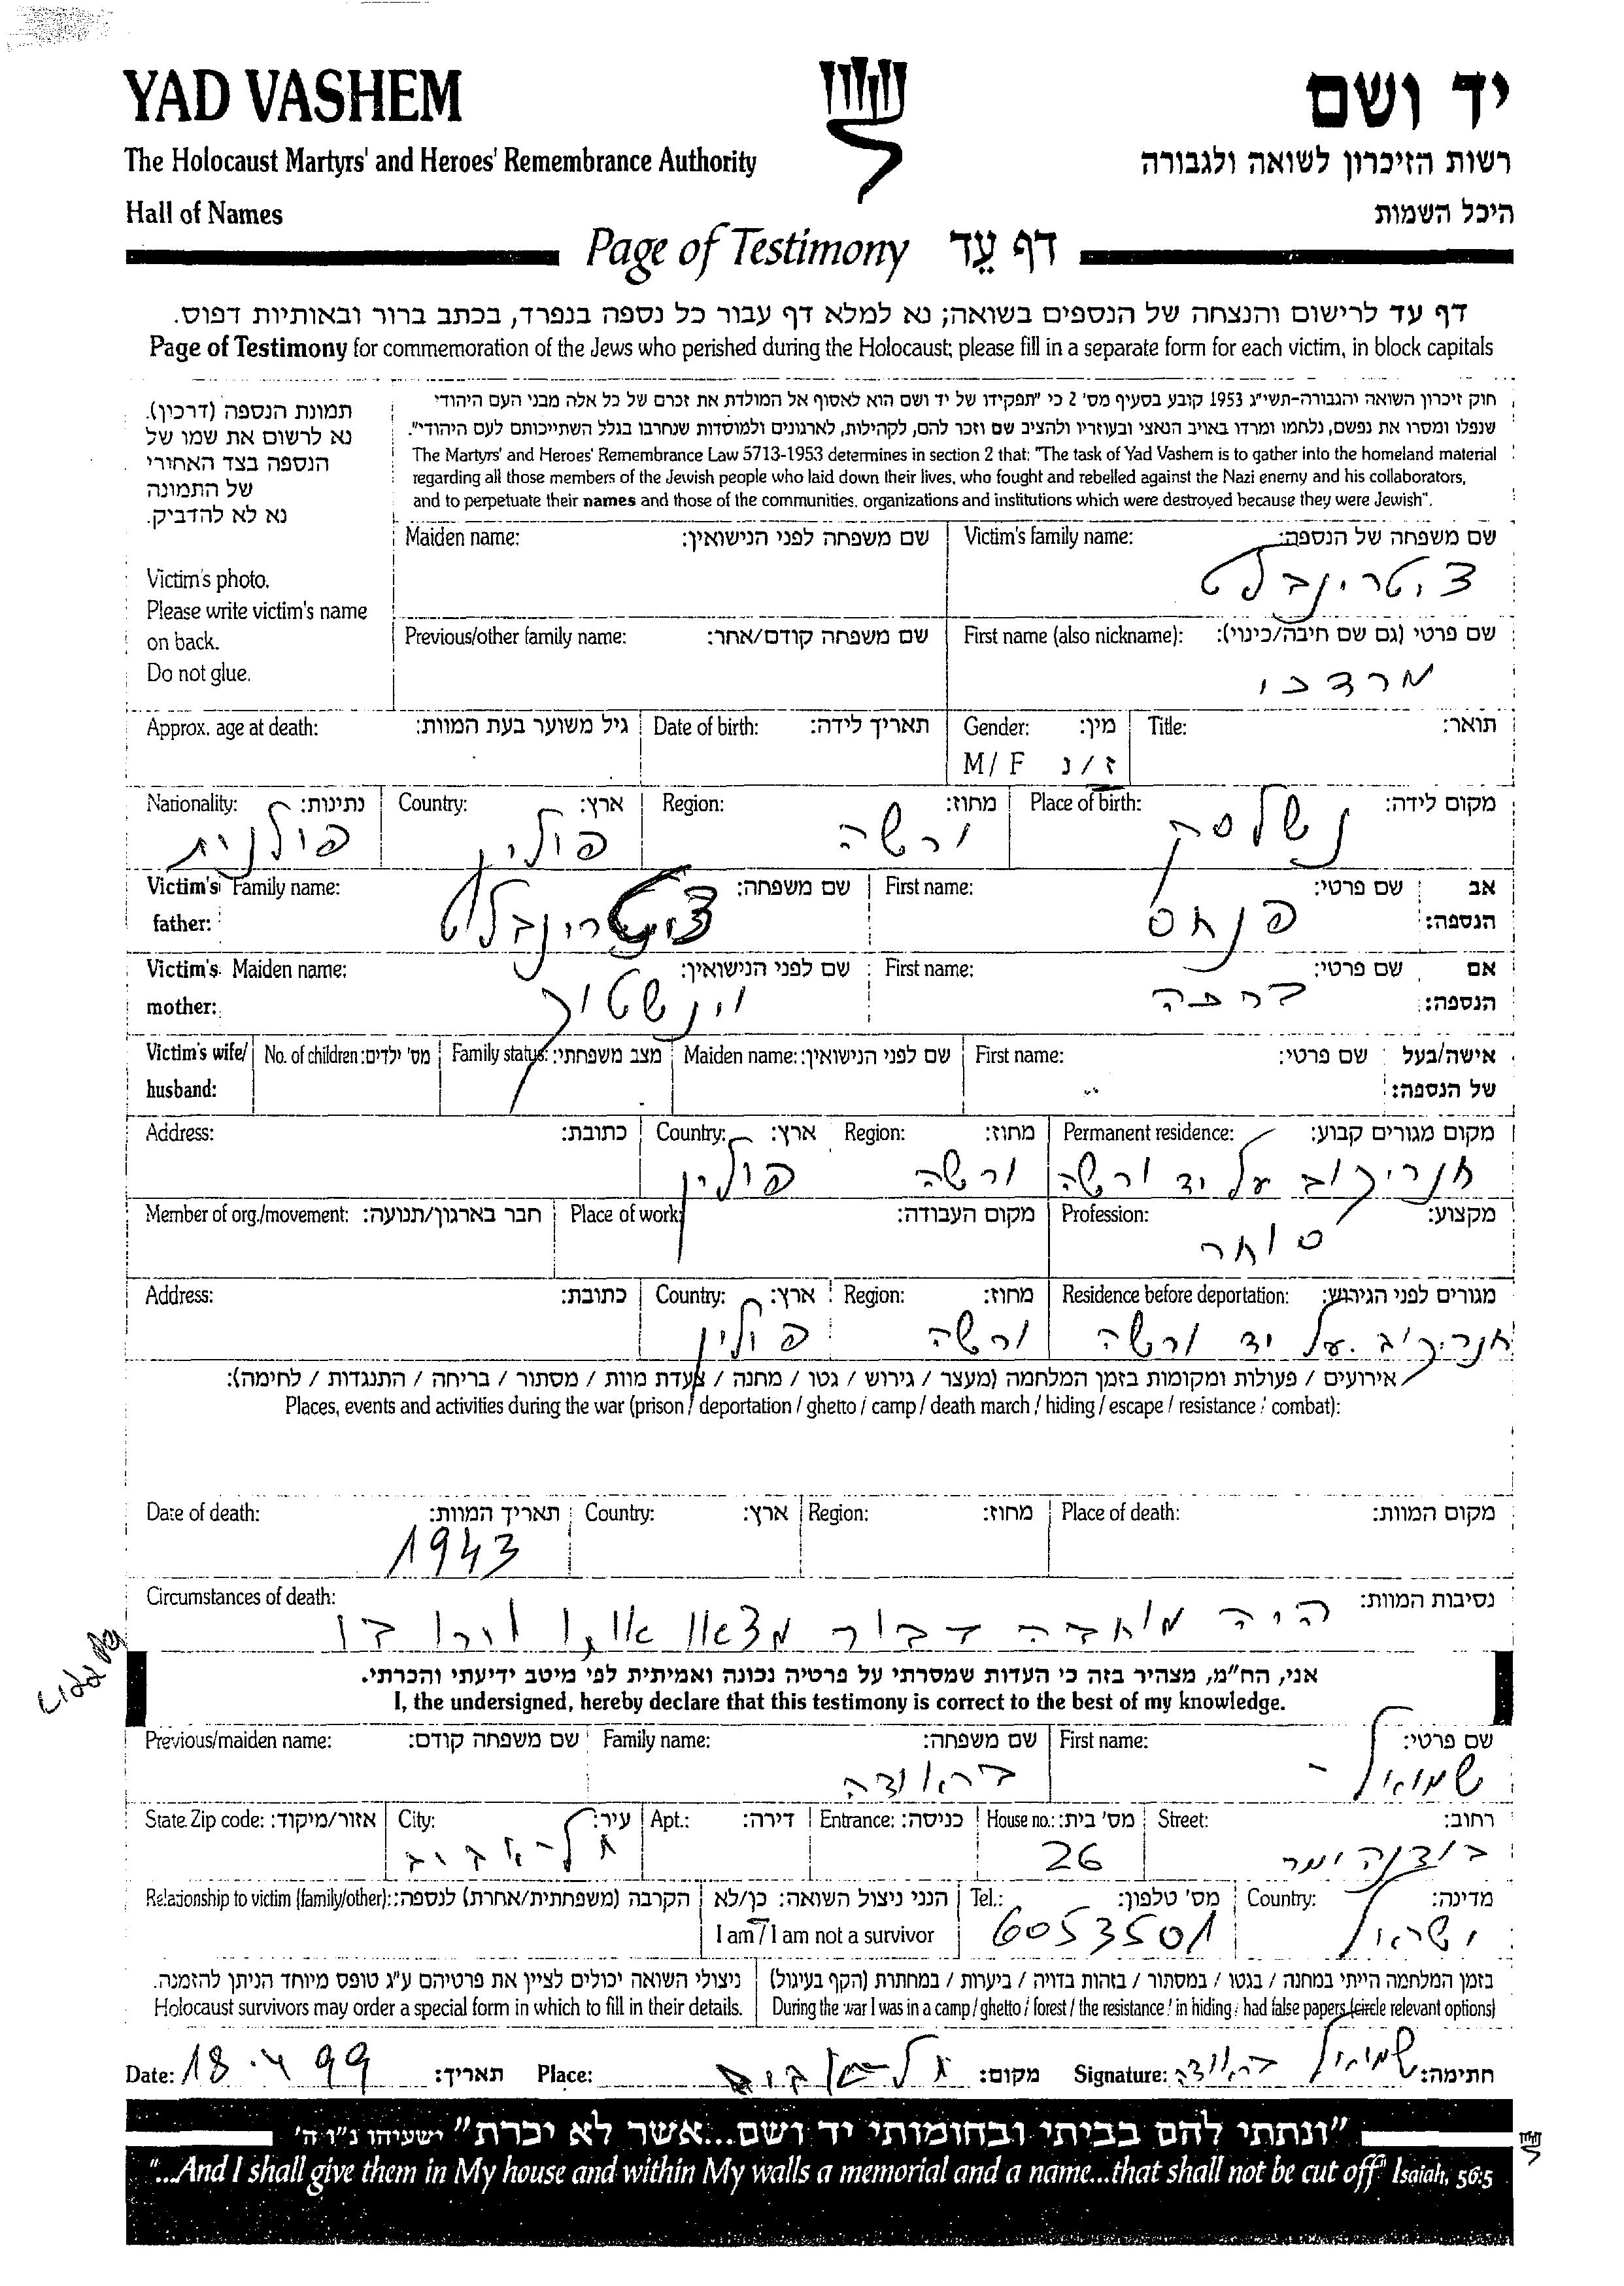 YAD VASHEM
יד ושם
The Holocaust Martyrs' and Heroes' Remembrance Authority
רשות הזיכרון לשואה ולגבורה
Hall of Names
היכל השמות
Page of Testimony דף עֵד
דף עד לרישום והנצחה של הנספים בשואה; נא למלא דף עבור כל נספה בנפרד, בכתב ברור ובאותיות דפוס.
Page of Testimony for commemoration of the Jews who perished during the Holocaust; please fill in a separate form for each victim, in block capitals
חוק זיכרון השואה והגבורה-תשי"ג 1953 קובע בסעיף מס' 2 כי "תפקידו של יד ושם הוא לאסוף אל המולדת את זכרם של כל אלה מבני העם היהודי
שנפלו ומסרו את נפשם, נלחמו ומרדו באויב הנאצי ובעוזריו ולהציב שם וזכר להם, לקהילות, לארגונים ולמוסדות שנחרבו בגלל השתייכותם לעם היהודי".
The Martyrs' and Heroes' Remembrance Law 5713-1953 determines in section 2 that: "The task of Yad Vashem is to gather into the homeland material
regarding all those members of the Jewish people who laid down their lives, who fought and rebelled against the Nazi enemy and his collaborators,
and to perpetuate their names and those of the communities, organizations and institutions which were destroyed because they were Jewish".
תמונת הנספה (דרכון).
נא לרשום את שמו של
הנספה בצד האחורי
של התמונה
נא לא להדביק.
Victim's photo.
Please write victim's name
on back.
Do not glue.
Maiden name: שם משפחה לפני הנישואין: Victim's family name: שם משפחה של הנספה:
ציטרינבלט
Previous/other family name: שם משפחה קודם/אחר: First name (also nickname): שם פרטי (גם שם חיבה/כינוי):
מרדכי
Approx. age at death: גיל משוער בעת המוות: Date of birth: תאריך לידה: Gender: מין: Title: תואר:
M / F ז / נ
Nationality: נתינות: Country: ארץ: Region: מחוז: Place of birth: מקום לידה:
פולנית פולין ורשה נשלסק
Victim's father: Family name: שם משפחה: First name: שם פרטי: אב הנספה:
ציטרינבלט פנחס
Victim's mother: Maiden name: שם לפני הנישואין: First name: שם פרטי: אם הנספה:
וינשטוק ברכה
Victim's wife/ husband: No. of children: מס' ילדים: Family status: מצב משפחתי: Maiden name: שם לפני הנישואין: First name: שם פרטי: אישה/בעל של הנספה:
Address: כתובת: Country: ארץ: Region: מחוז: Permanent residence: מקום מגורים קבוע:
פולין ורשה הנריקוב על יד ורשה
Member of org./movement: חבר בארגון/תנועה: Place of work: מקום העבודה: Profession: מקצוע:
סוחר
Address: כתובת: Country: ארץ: Region: מחוז: Residence before deportation: מגורים לפני הגירוש:
פולין ורשה הנריקוב על יד ורשה
אירועים / פעולות ומקומות בזמן המלחמה (מעצר / גירוש / גטו / מחנה / צעדת מוות / מסתור / בריחה / התנגדות / לחימה):
Places, events and activities during the war (prison / deportation / ghetto / camp / death march / hiding / escape / resistance / combat):
Date of death: תאריך המוות: Country: ארץ: Region: מחוז: Place of death: מקום המוות:
1943
Circumstances of death: נסיבות המוות:
היה מוחבה בבור מצאו אותו וירו בו
אני, הח"מ, מצהיר בזה כי העדות שמסרתי על פרטיה נכונה ואמיתית לפי מיטב ידיעתי והכרתי.
I, the undersigned, hereby declare that this testimony is correct to the best of my knowledge.
Previous/maiden name: שם משפחה קודם: Family name: שם משפחה: First name: שם פרטי:
בראודה שמואל -
State Zip code: אזור/מיקוד: City: עיר: Apt.: דירה: Entrance: כניסה: House no.: מס' בית: Street: רחוב:
תל-אביב 26 בודנהימר
Relationship to victim (family/other): הקרבה (משפחתית/אחרת) לנספה: הנני ניצול השואה: כן/לא Tel.: מס' טלפון: Country: מדינה:
I am / I am not a survivor 6053501 ישראל
בזמן המלחמה הייתי במחנה / בגטו / במסתור / בזהות בדויה / ביערות / במחתרת (הקף בעיגול)
During the war I was in a camp / ghetto / forest / the resistance / in hiding / had false papers (circle relevant options)
ניצולי השואה יכולים לציין את פרטיהם ע"ג טופס מיוחד הניתן להזמנה.
Holocaust survivors may order a special form in which to fill in their details.
Date: 18.4 99 תאריך: Place: תל-אביב מקום: Signature: שמואל בראודה חתימה:
"ונתתי להם בביתי ובחומותי יד ושם...אשר לא יכרת" ישעיהו נ"ו ה'
"...And I shall give them in My house and within My walls a memorial and a name...that shall not be cut off" Isaiah, 56:5